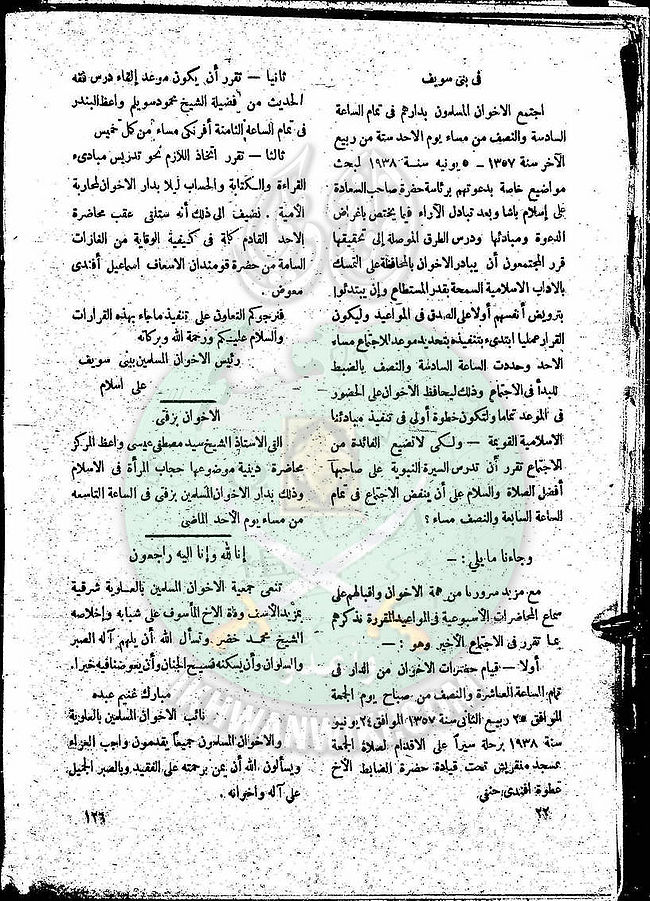 فى بنى سويف
اجتمع الاخوان المسلمون بدارهم فى تمام الساعة
السادسة والنصف من مساء يوم الاحد ستة من ربيع
الآخر سنة ١٣٥٧ – ٥ يونيه سنة ١٩٣٨ لبحث
مواضيع خاصة بدعوتهم برئاسة حضرة صاحب السعادة
على إسلام باشا وبعد تبادل الآراء فيما يختص بأغراض
الدعوة ومبادئها ودرس الطرق الموصلة إلى تحقيقها
قرر المجتمعون أن يبادر الاخوان بالمحافظة على التمسك
بالآداب الاسلامية السمحة بقدر المستطاع وإن يبتدئوا
بترويض أنفسهم أولا على الصدق فى المواعيد وليكون
القرار عمليا ابتدىء بتنفيذه بتحديد موعد الاجتماع مساء
الاحد وحددت الساعة السادسة والنصف بالضبط
للبدأ فى الاجتماع وذلك ليحافظ الاخوان على الحضور
فى الموعد تماما ولتكون خطوة أولى فى تنفيذ مبادئنا
الاسلامية القويمة – ولكى لا تضيع الفائدة من
الاجتماع تقرر أن تدرس السيرة النبوية على صاحبها
أفضل الصلاة والسلام على أن ينفض الاجتماع فى تمام
الساعة السابعة والنصف مساء ؟
وجاءنا ما يلى : –
مع مزيد سرورنا من همة الاخوان واقبالهم على
سماع المحاضرات الأسبوعية فى المواعيد المقررة نذكرهم
بما تقرر فى الاجتماع الأخير وهو : –
أولا – قيام حضرات الاخوان من الدار فى
تمام الساعة العاشرة والنصف من صباح يوم الجمعة
الموافق ٢٥ ربيع الثانى سنة ١٣٥٧ الموافق ٢٤ يونيو
سنة ١٩٣٨ برحلة سيراً على الاقدام لصلاة الجمعة
بمسجد منقريش تحت قيادة حضرة الضابط الأخ
عطوة افندى حنفى
٢٢
ثانيا – تقرر أن يكون موعد إلقاء درس فقه
الحديث من فضيلة الشيخ محمود سويلم واعظ البندر
فى تمام الساعة الثامنة أفرنكى مساء من كل خميس
ثالثا – تقرر اتخاذ اللازم نحو تدريس مبادىء
القراءة والكتابة والحساب ليلا بدار الاخوان لمحاربة
الأمية . نضيف الى ذلك أنه ستلقى عقب محاضرة
الاحد القادم كلمة فى كيفية الوقاية من الغازات
السامة من حضرة قومندان الاسعاف اسماعيل أفندى
معوض .
فنرجوكم التعاون على تنفيذ ما جاء بهذه القرارات
والسلام عليكم ورحمة الله وبركاته
رئيس الاخوان المسلمين ببنى سويف
على اسلام
الاخوان بزفتى
القى الاستاذ الشيخ سيد مصطفى عيسى واعظ المركز
محاضرة دينية موضوعها حجاب المرأة فى الاسلام
وذلك بدار الاخوان المسلمين بزفتى فى الساعة التاسعه
من مساء يوم الأحد الماضى
إنا لله وإنا اليه راجعون
تنعى جمعية الاخوان المسلمين بالعلوية شرقية
بمزيد الأسف وفاة الاخ المأسوف على شبابه وإخلاصه
الشيخ محمد خضر وتسأل الله أن يلهم آله الصبر
والسلوان وأن يسكنه فسيح الجنان وأن يعوضنا فيه خيرا.
مبارك غنيم عبده
نائب الاخوان المسلمين بالعلوية
والاخوان المسلمون جميعاً يقدمون واجب العزاء
ويسألون الله أن يمن برحمته على الفقيد وبالصبر الجميل
على آله واخوانه .
١٢٦
IKHWANWIKI.COM